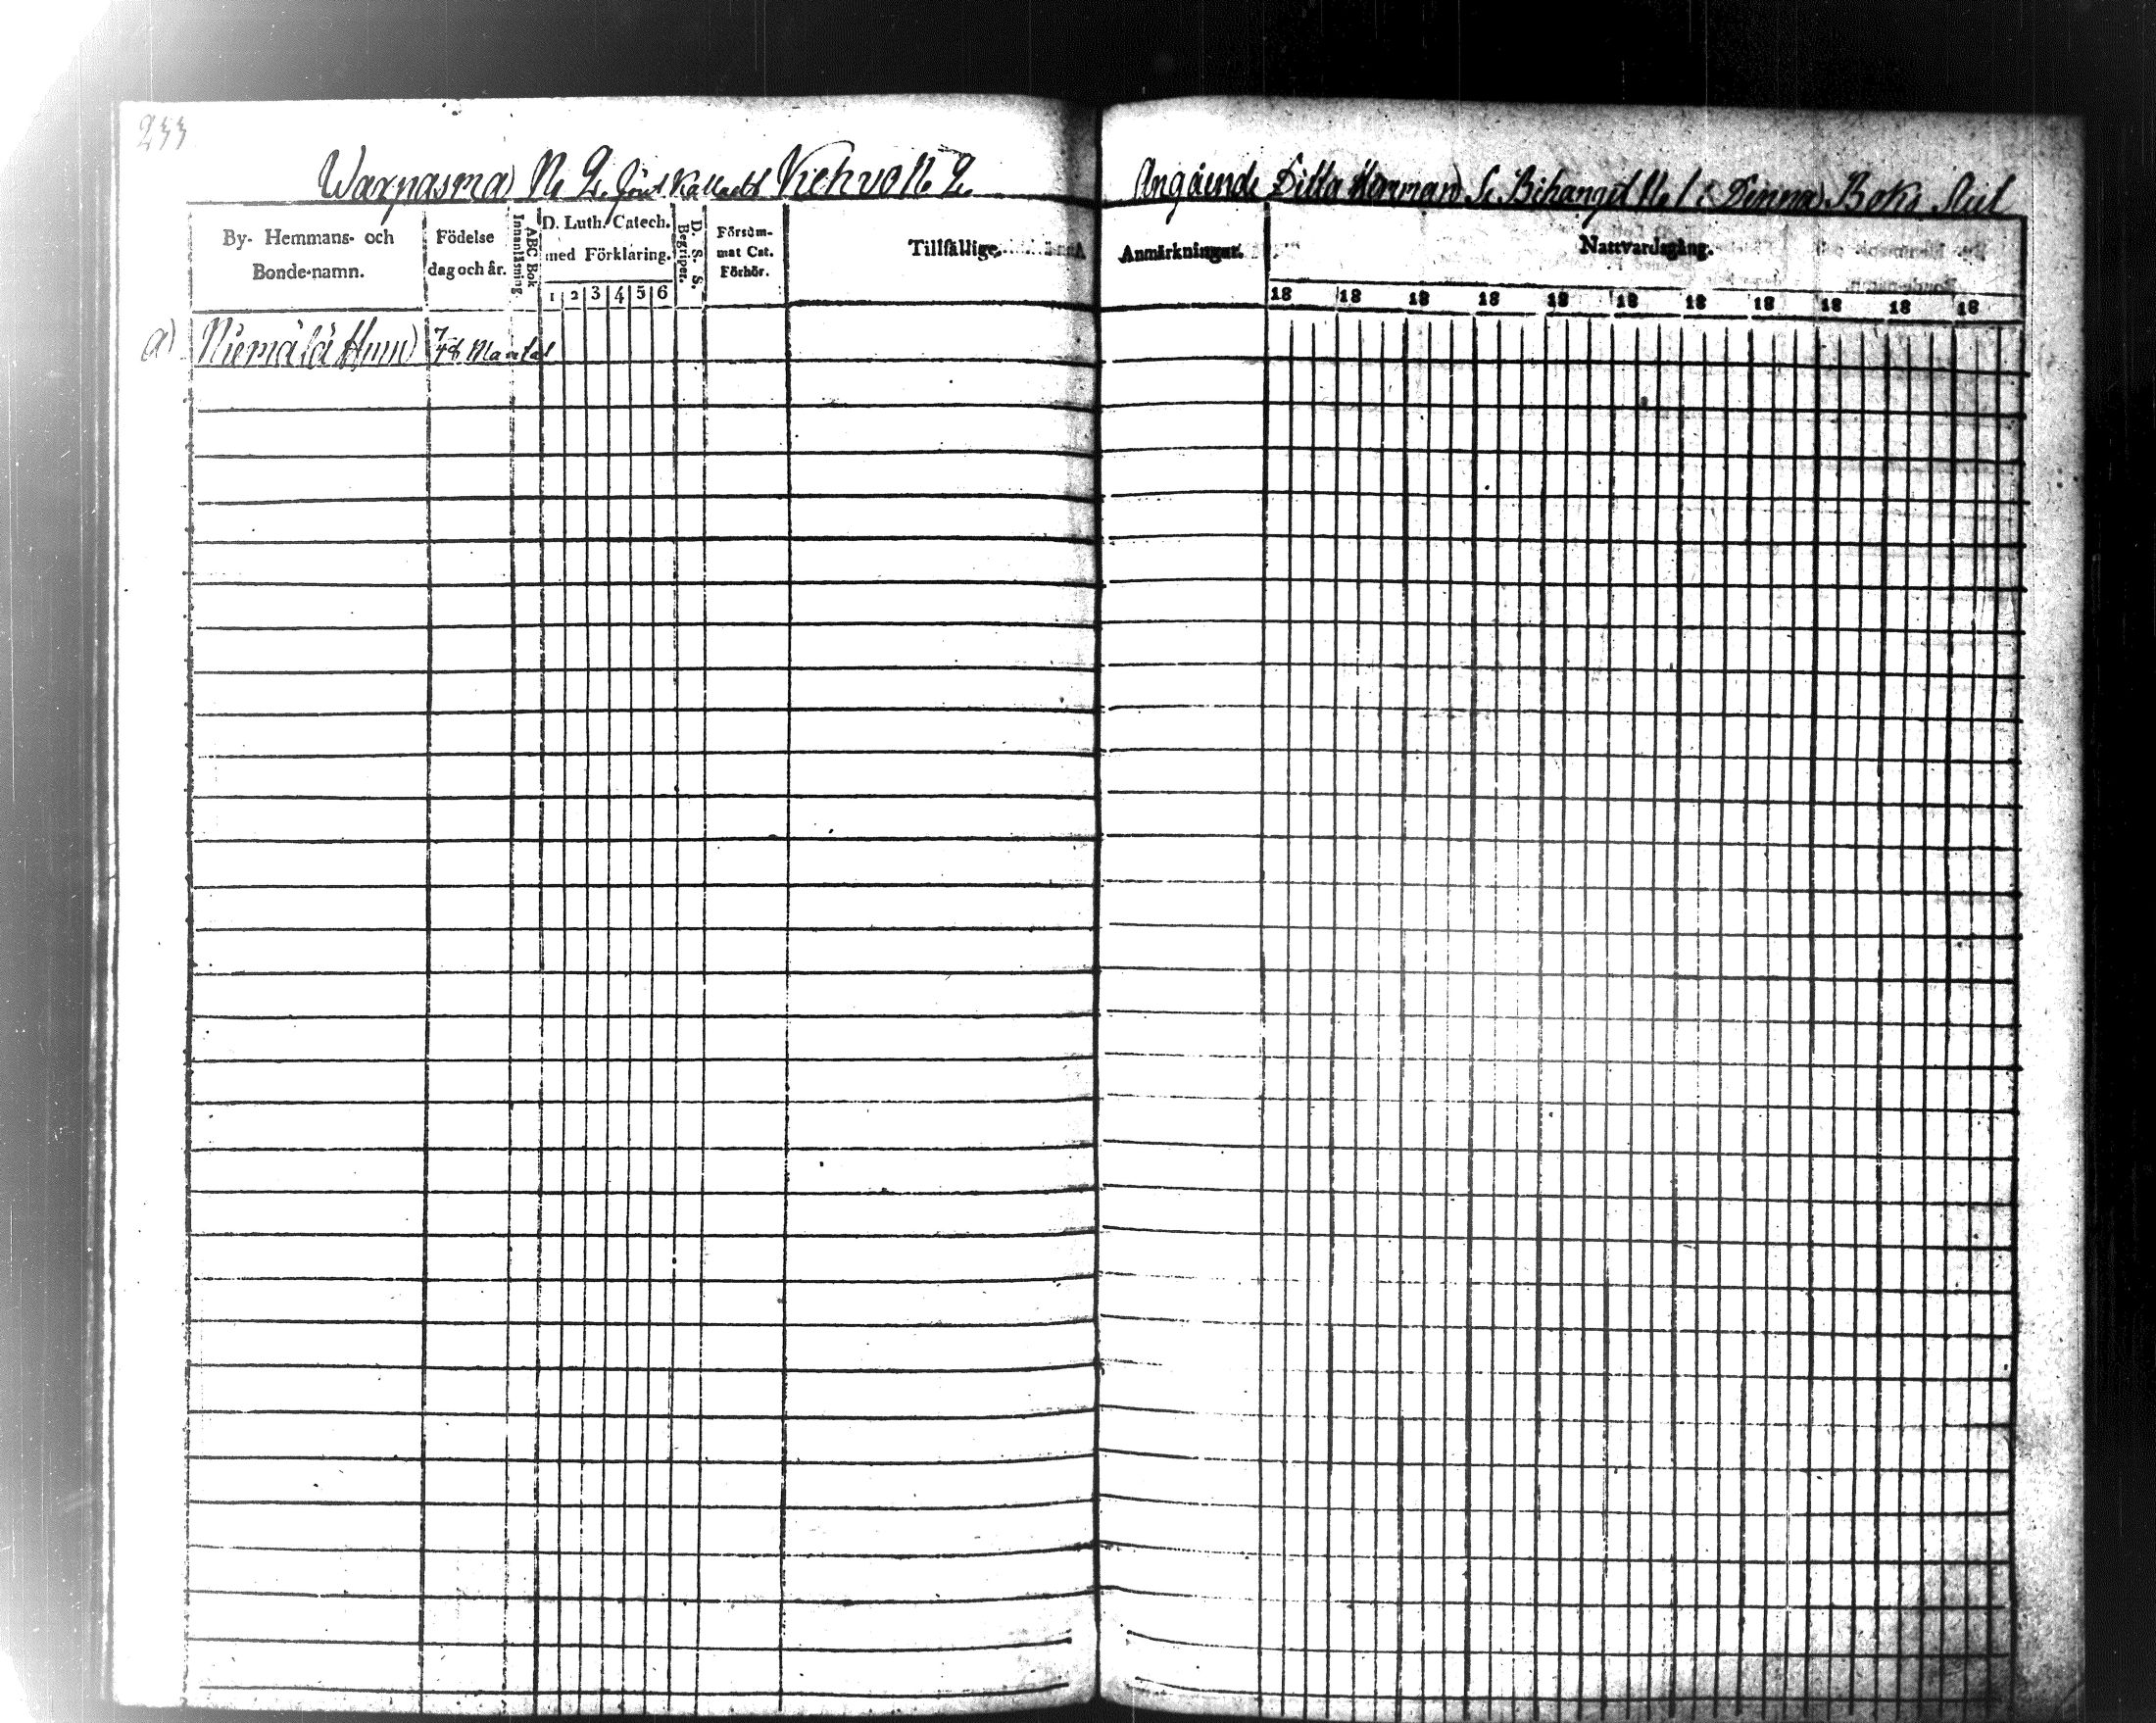 233
Warpasma N 2. förut kalladt Kiehvo N 2.
Angående Detta Hemman Se Bihanget N 1 i Denna Boks Slut
By- Hemmans- och Bonde-namn.
Födelse dag och år.
Innanläsning
ABC Bok
D. Luth. Catech. med Förklaring.
1 2 3 4 5 6
Begriper.
D. S. S.
Försummat Cat. Förhör.
Tillfällige
Anmärkningar.
Nattvardsgång.
18 18 18 18 18 18 18 18 18 18 18
a) Niemälä Hmn Mantal